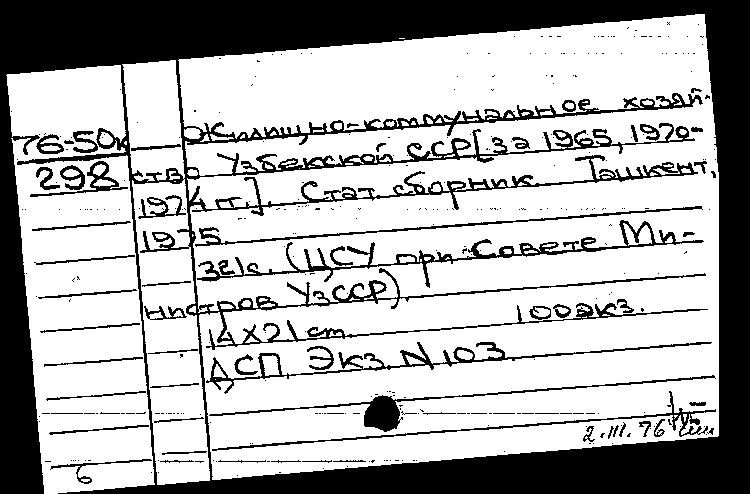 76-50к
298
Жилищно-коммунальное хозяй-
ство Узбекской ССР [за 1965, 1970-
1974 гг.]. Стат. сборник. Ташкент,
1975.
321с. (ЦСУ при Совете Ми-
нистров УзССР).
14х21 cm. 100экз.
ДСП. Экз. N 103.
2.III.76
6